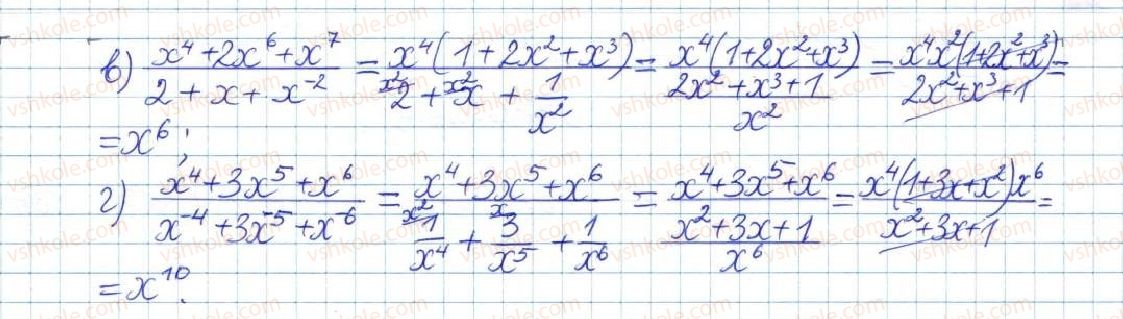 в) \frac{x^4+2x^6+x^7}{2+x+x^{-2}} = \frac{x^4(1+2x^2+x^3)}{\overset{x^2}{2}+\overset{x^2}{x}+\frac{1}{x^2}} = \frac{x^4(1+2x^2+x^3)}{\frac{2x^2+x^3+1}{x^2}} = \frac{x^4x^2(1+2x^2+x^3)}{2x^2+x^3+1} =
= x^6;
г) \frac{x^4+3x^5+x^6}{x^{-4}+3x^{-5}+x^{-6}} = \frac{x^4+3x^5+x^6}{\overset{x^2}{\frac{1}{x^4}}+\overset{x}{\frac{3}{x^5}}+\frac{1}{x^6}} = \frac{x^4+3x^5+x^6}{\frac{x^2+3x+1}{x^6}} = \frac{x^4(1+3x+x^2)x^6}{x^2+3x+1} =
= x^{10}.
vshkole.com